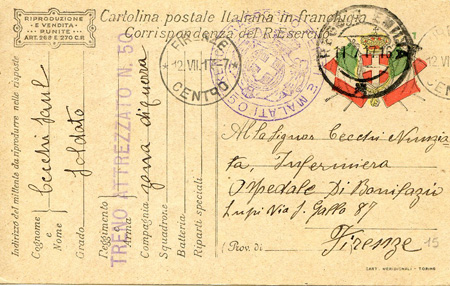 RIPRODUZIONE
E VENDITA
PUNITE
ART. 269 E 270 C.P.
Cartolina postale Italiana in franchigia
Corrispondenza del R. Esercito
FIRENZE
12.VII.17
CENTRO
REGGIO EMILIA
MALATI
TRENO ATTREZZATO N. 50
Indirizzo del mittente da riprodurre nelle risposte
Cognome e Nome Cecchi
Soldato
Reggimento
Arma
Compagnia zona di guerra
Squadrone
Batteria
Riparti speciali
Alla Signora Cecchi Nunzia
ta, Infermiera
Ospedale Di Bonifazio
Lupi Via S. Gallo 87
(Prov. di ) Firenze
15
CART. MERIDIONALI - TORINO